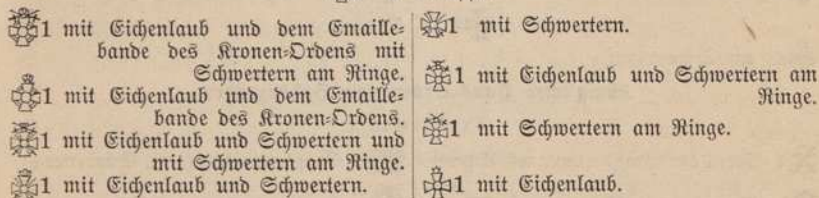 1 mit Eichenlaub und dem Emaille-
bande des Kronen-Ordens mit
Schwertern am Ringe.
1 mit Eichenlaub und dem Emaille-
bande des Kronen-Ordens.
1 mit Eichenlaub und Schwertern und
mit Schwertern am Ringe.
1 mit Eichenlaub und Schwertern.
1 mit Schwertern.
1 mit Eichenlaub und Schwertern am
Ringe.
1 mit Schwertern am Ringe.
1 mit Eichenlaub.